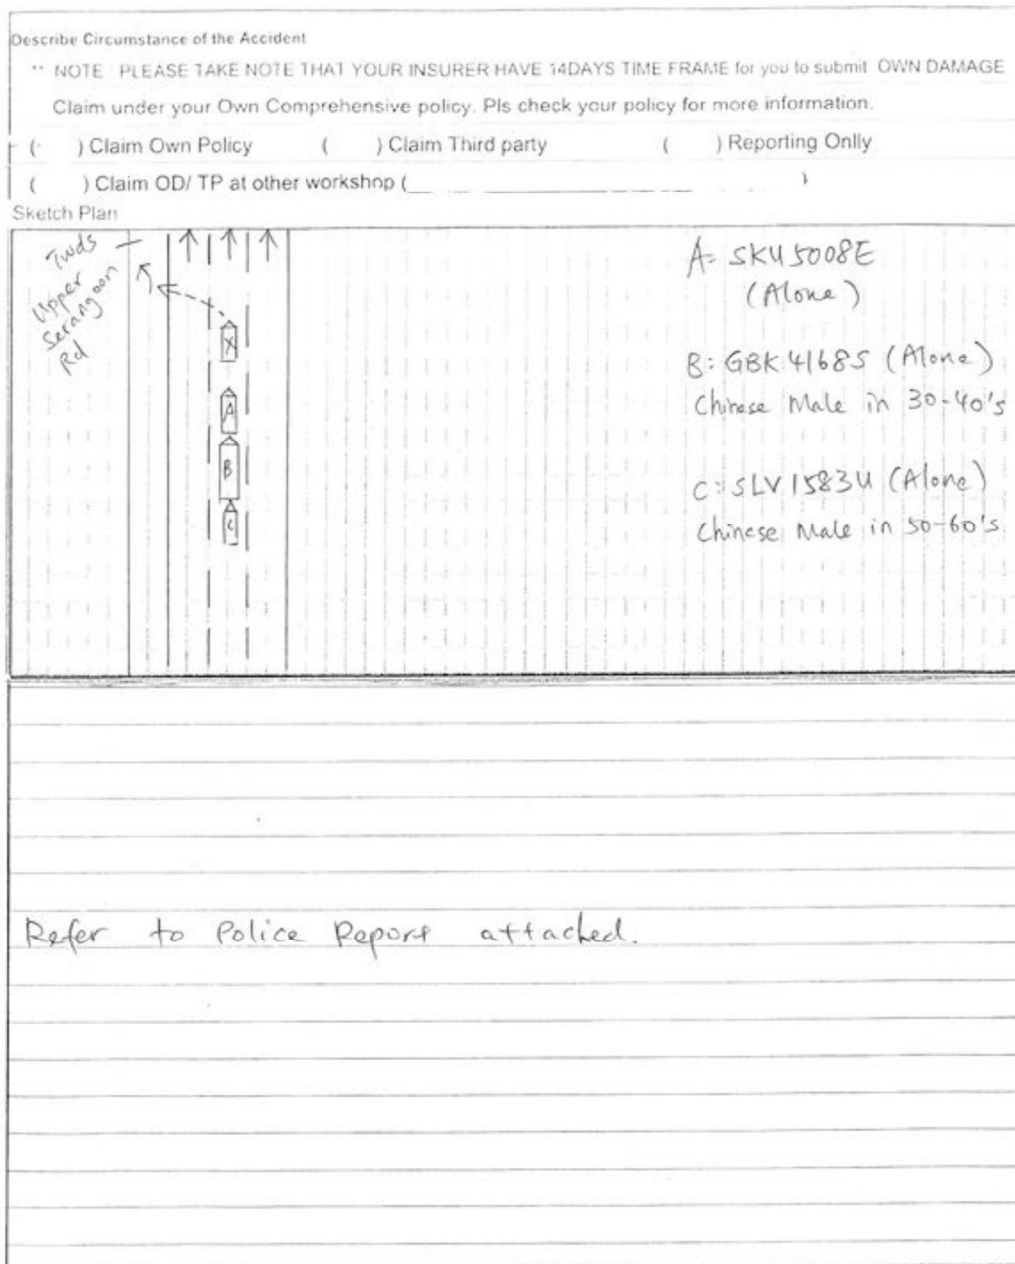 Describe Circumstance of the Accident
** NOTE PLEASE TAKE NOTE THAT YOUR INSURER HAVE 14DAYS TIME FRAME for you to submit OWN DAMAGE
Claim under your Own Comprehensive policy. Pls check your policy for more information.
( ) Claim Own Policy ( ) Claim Third party ( ) Reporting Onlly
( ) Claim OD/ TP at other workshop (                    )
Sketch Plan
Twds
Upper
Serangoon
Rd
X
A
B
C
A= SKU5008E
(Alone)
B: GBK4168S (Alone)
Chinese Male in 30-40's
C: SLV1583U (Alone)
Chinese Male in 50-60's
Refer to Police Report attached.